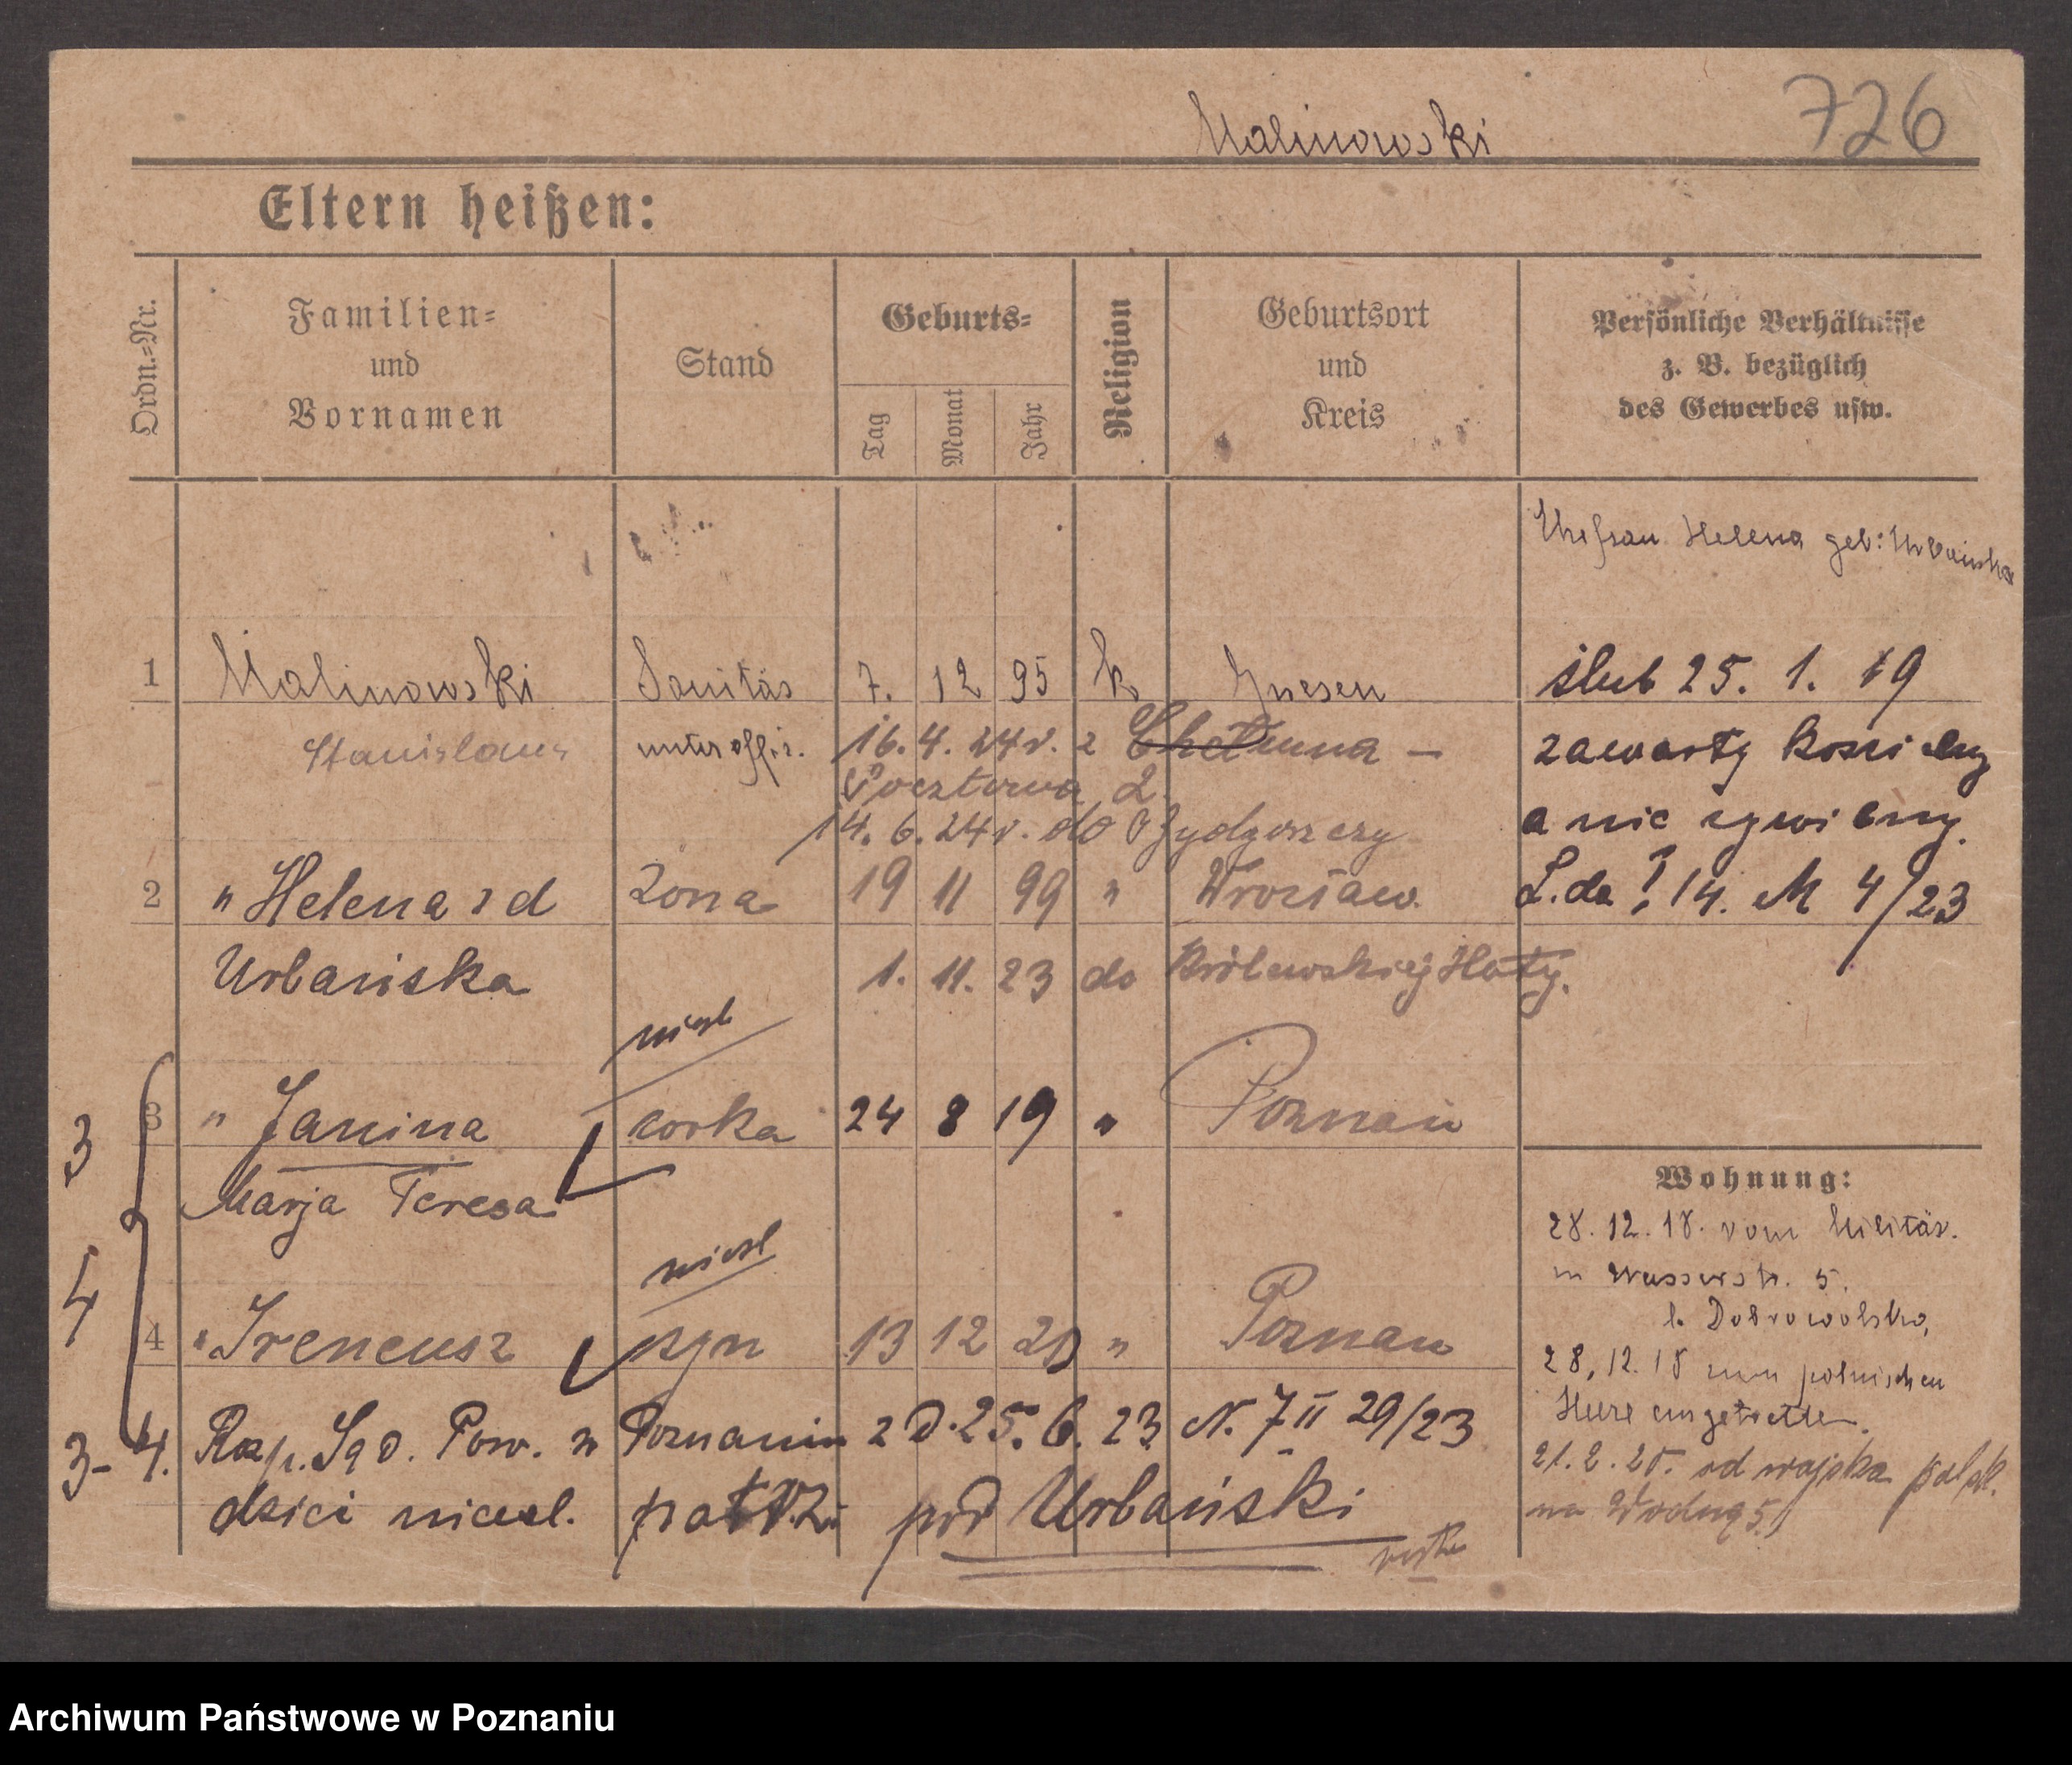 Malinowski 726
Eltern heißen:
Ordn.-Nr.
Familien-
und
Vornamen
Stand
Geburts-
Tag
Monat
Jahr
Religion
Geburtsort
und
Kreis
Persönliche Verhältnisse
z. B. bezüglich
des Gewerbes usw.
Ehefrau Helena geb: Urbainska
1 Malinowski Sanitäs 7. 12 95 k Gnesen ślub 25. 1. 19
Stanislaus unteroffiz. 16. 4. 24 r. z Chełmna – zawarty kościelny
Pocztowa 2.
14. 6. 24 r. do Bydgoszczy a nie cywilny.
2 " Helena z d Żona 19 11 99 " Wrocław L. da 14. M 4/23
Urbańska 1. 11. 23 do Królewskiej Huty.
nieśl
3 3 " Janina corka 24 8 19 " Poznań
Marja Teresa
nieśl
4 4 " Ireneusz syn 13 12 20 " Poznań
3-4. Rozp. Sąd. Pow. w Poznaniu z D. 25. 6. 23 N. 7 II 29/23
dzieci nieśl. patrz pod Urbański
Wohnung:
28. 12. 18. vom Militär.
in Wasserstr. 5.
b. Dobrowolska,
28, 12. 18 zum polnischen
Heere eingetretten.
21. 2. 20. od wojska
na Wodną 5